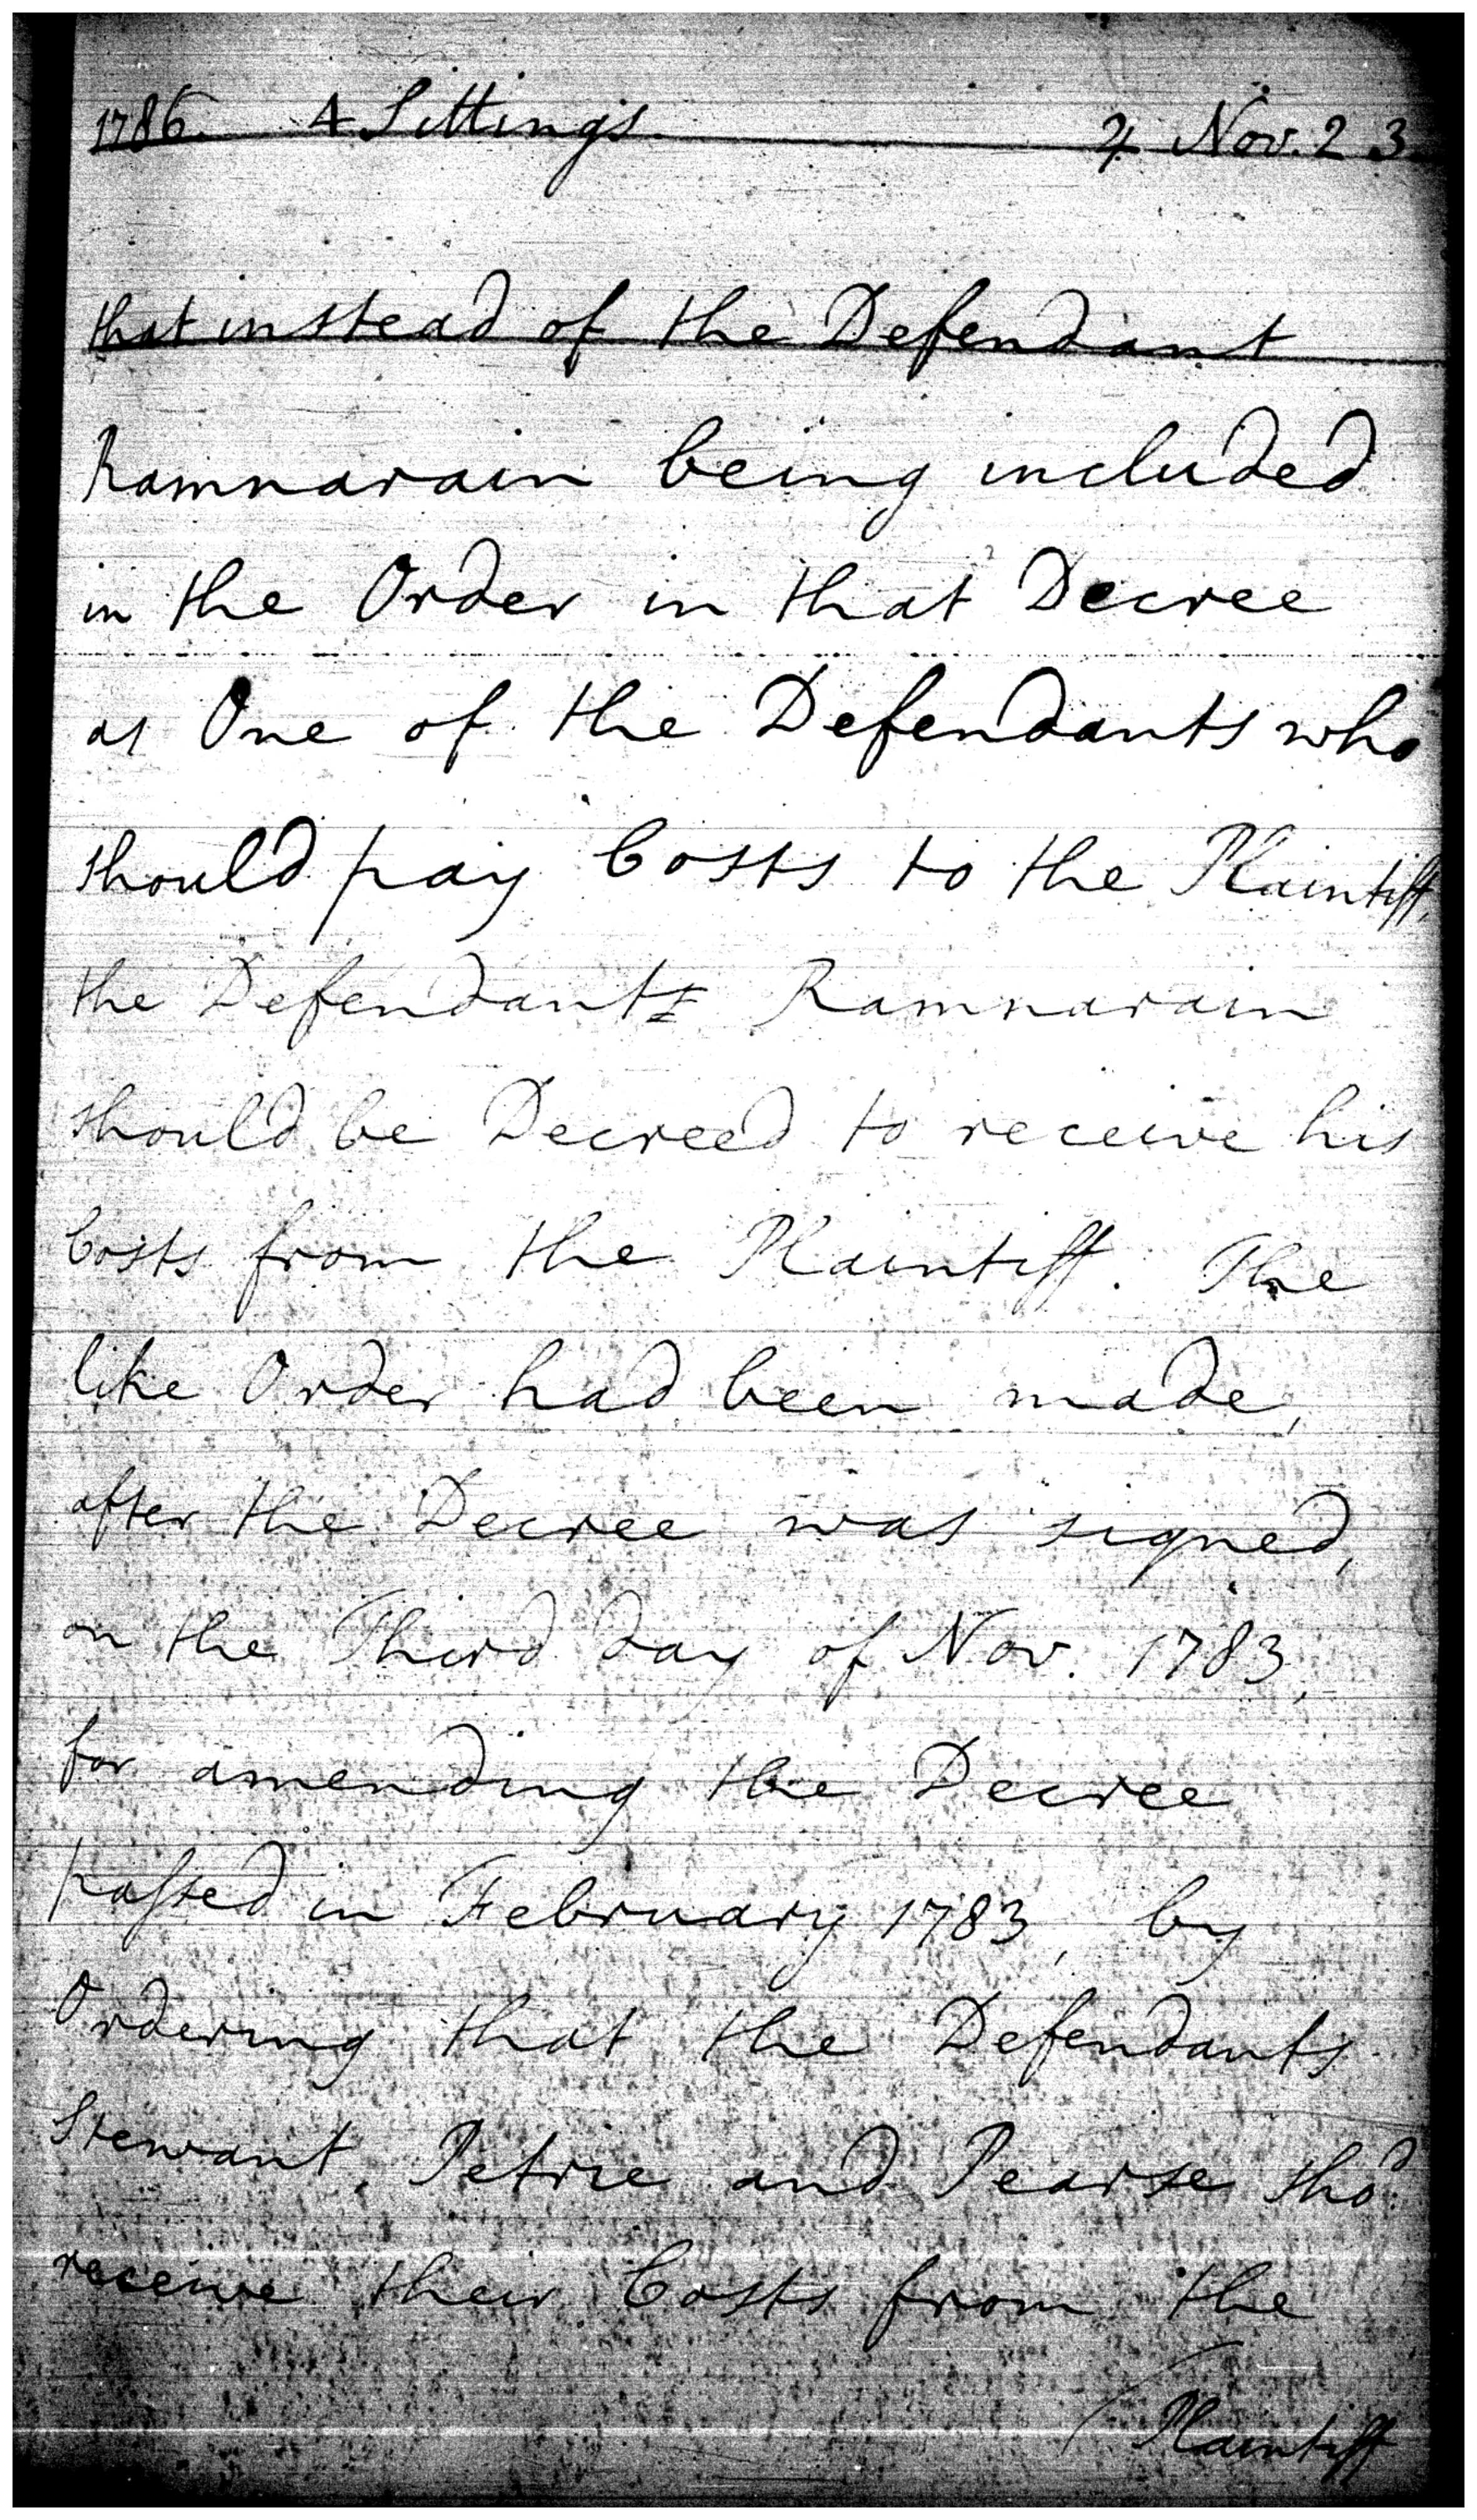 1786. 4 Sittings. ♃ Nov. 23.
that instead of the Defendant
Ramnarain being included
in the Order in that Decree
as One of the Defendants who
should pay Costs to the Plaintiff,
the Defendants Ramnarain
should be Decreed to receive his
Costs from the Plaintiff. The
like Order had been made,
after the Decree was signed,
on the Third day of Nov. 1783,
for amending the Decree
paſsed in February 1783, by
Ordering that the Defendants
Stewart, Petrie and Pearse sho.d
receive their Costs from the
Plaintiff